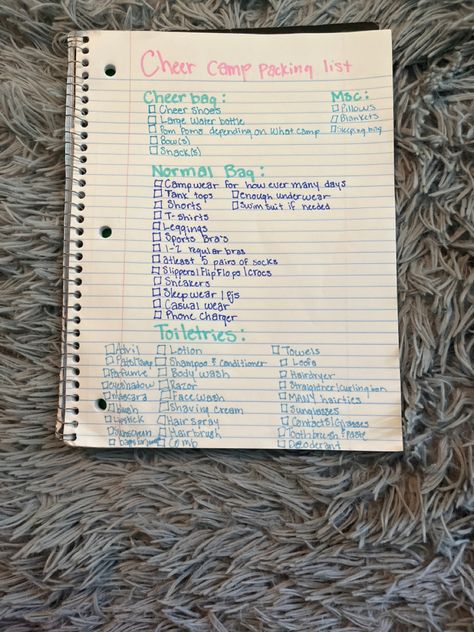 Cheer Camp Packing list
Cheer bag:
Cheer Shoes
Large water bottle
Pom Poms depending on what camp
Bow(s)
Snack(s)
Msc:
Pillows
Blankets
Sleeping bag
Normal Bag:
Camp wear for how ever many days
Tank tops
Enough underwear
Shorts
Swim suit if needed
T-shirts
Leggings
Sports Bra's
1-2 regular bras
atleast 5 pairs of socks
Slippers/Flip Flops/Crocs
Sneakers
Sleep wear/Pjs
Casual wear
Phone Charger
Toiletries:
Advil
Pads/Tamp
Perfume
eyeshadow
Mascara
Blush
Lipstick
Sunscreen
Lotion
Shampoo & Conditioner
Body wash
Razor
Face wash
Shaving cream
Hair spray
Hair brush
Comb
Towels
Loofa
Hairdryer
Straightener/curling iron
MANY hairties
Sunglasses
Contacts/Glasses
Toothbrush/Paste
Deodorant